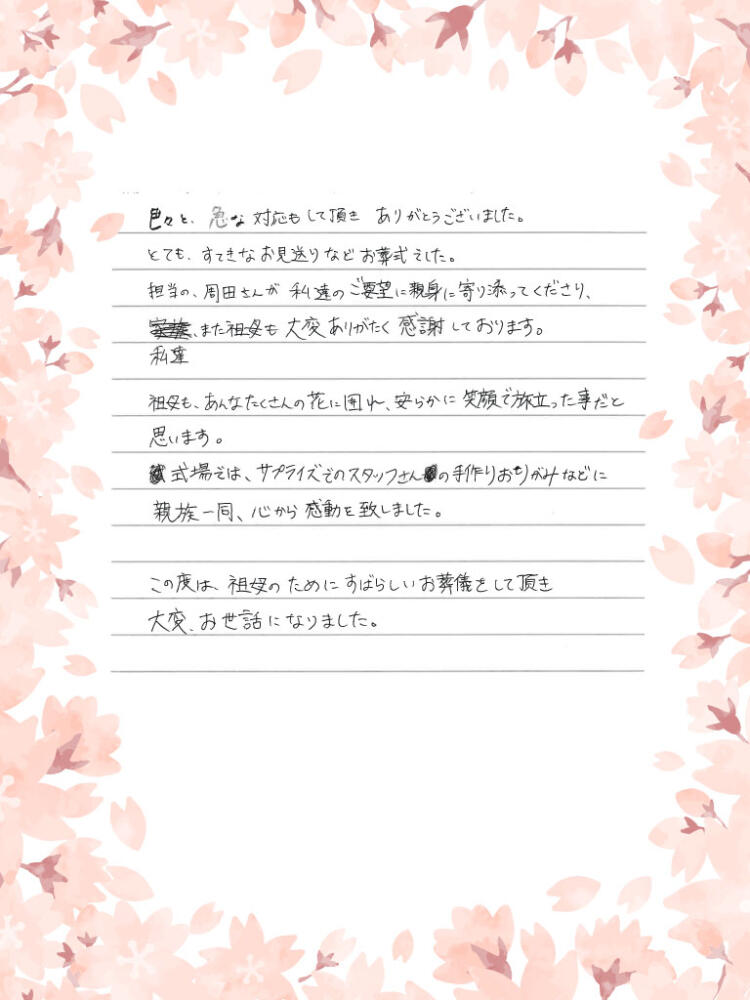 色々と、急な対応もして頂き ありがとうございました。
とても、すてきなお見送りなどお葬式でした。
担当の、周田さんが 私達のご要望に親身に寄り添ってくださり、
家族、また祖母も 大変ありがたく 感謝しております。
私達
祖母も、あんなたくさんの花に囲れ、安らかに 笑顔で旅立った事だと
思います。
式場では、サプライズでのスタッフさんの手作りおりがみなどに
親族一同、心から 感動を致しました。
この度は、祖母の ために すばらしいお葬儀をして頂き
大変、お世話になりました。